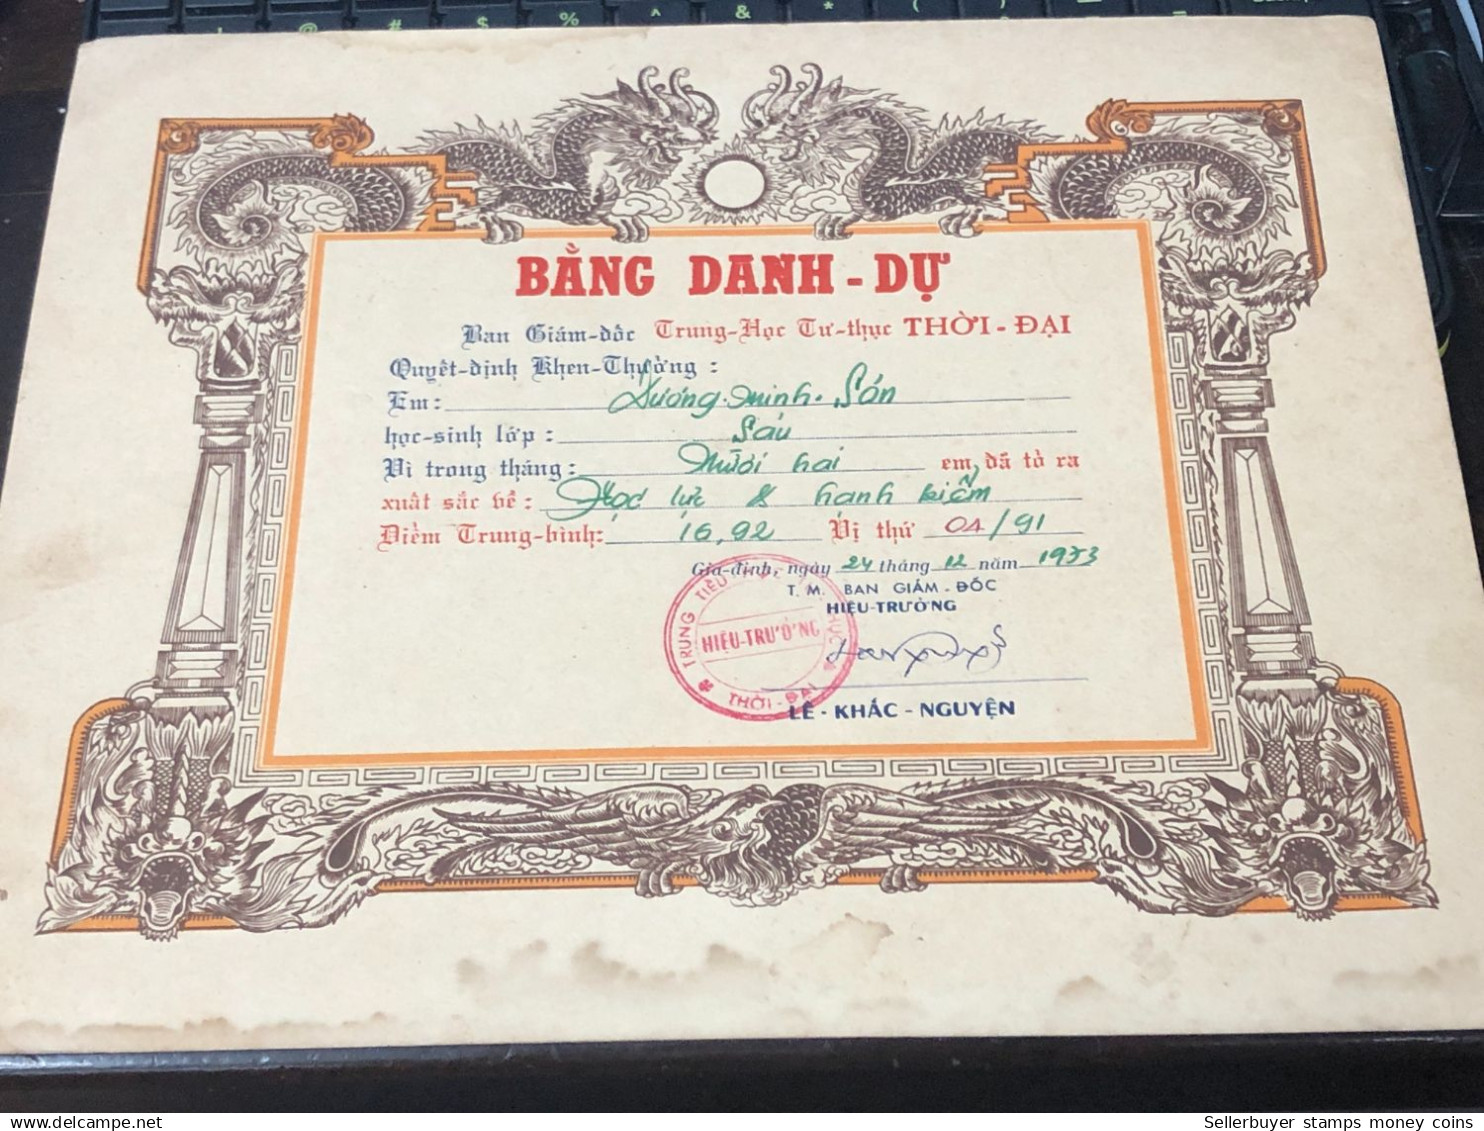 BẰNG DANH - DỰ
Ban Giám-đốc Trung-Học Tư-thục THỜI - ĐẠI
Quyết-định Khen-Thưởng :
Em: Dương. Minh. Sơn
học-sinh lớp : Sáu
Vì trong tháng: Mười hai em, đã tỏ ra
xuất sắc về : Học lực & hạnh kiểm
Điểm Trung-bình: 16,92 Vị thứ 04/91
Gia-định, ngày 24 tháng 12 năm 1973
T. M. BAN GIÁM - ĐỐC
HIỆU-TRƯỞNG
TRUNG TIỂU HỌC
HIỆU-TRƯỞNG
THỜI - ĐẠI
LÊ - KHẮC - NGUYỆN
delcampe.net
Sellerbuyer stamps money coins